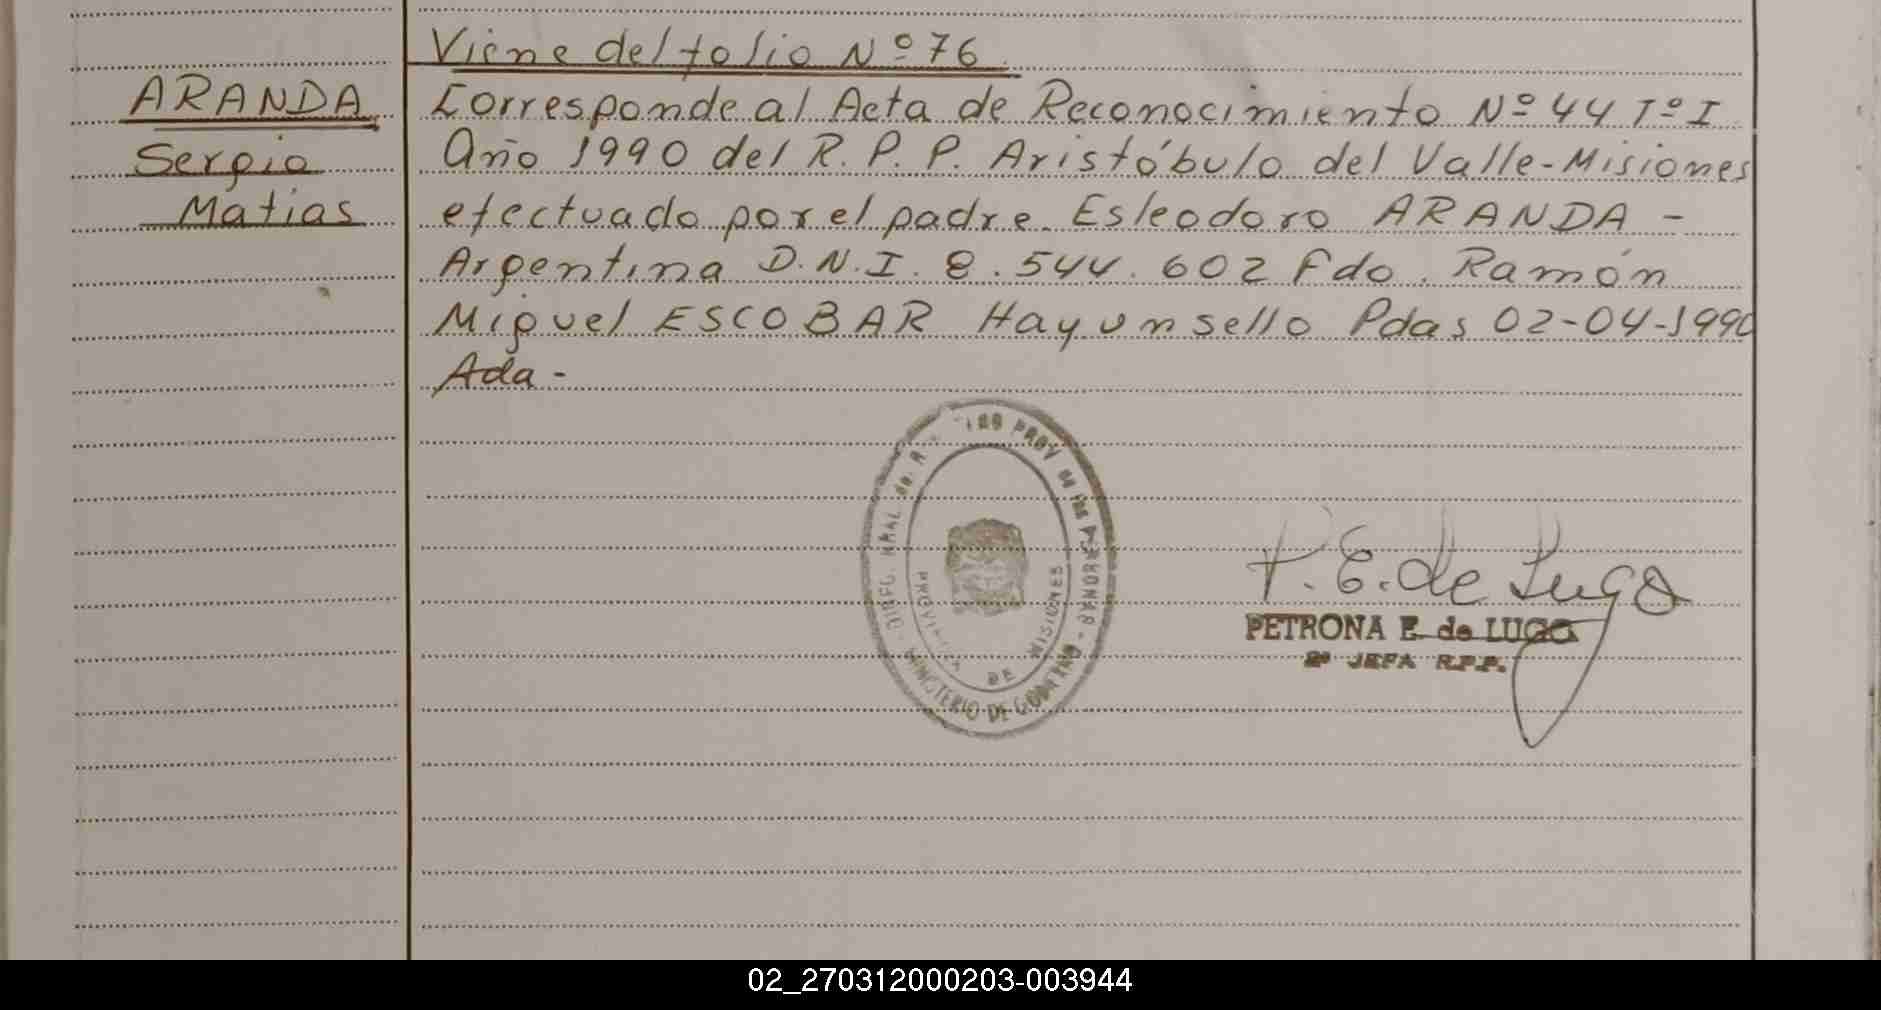 Viene del folio Nº 76
ARANDA
Sergio
Matias
Corresponde al Acta de Reconocimiento Nº 44 Tº I
Año 1990 del R. P. P. Aristóbulo del Valle-Misiones
efectuado por el padre Esleodoro ARANDA -
Argentina D.N.I. 8.544.602 Fdo. Ramón
Miguel ESCOBAR Hay un sello Pdas 02-04-1990
Ada -
DIREC. GRAL. de PROV de las PERSONAS - MINISTERIO DE GOBIERNO
PROVINCIA DE MISIONES
P. E. de Lugo
PETRONA E. de LUGO
2º JEFA R.P.P.
02_270312000203-003944